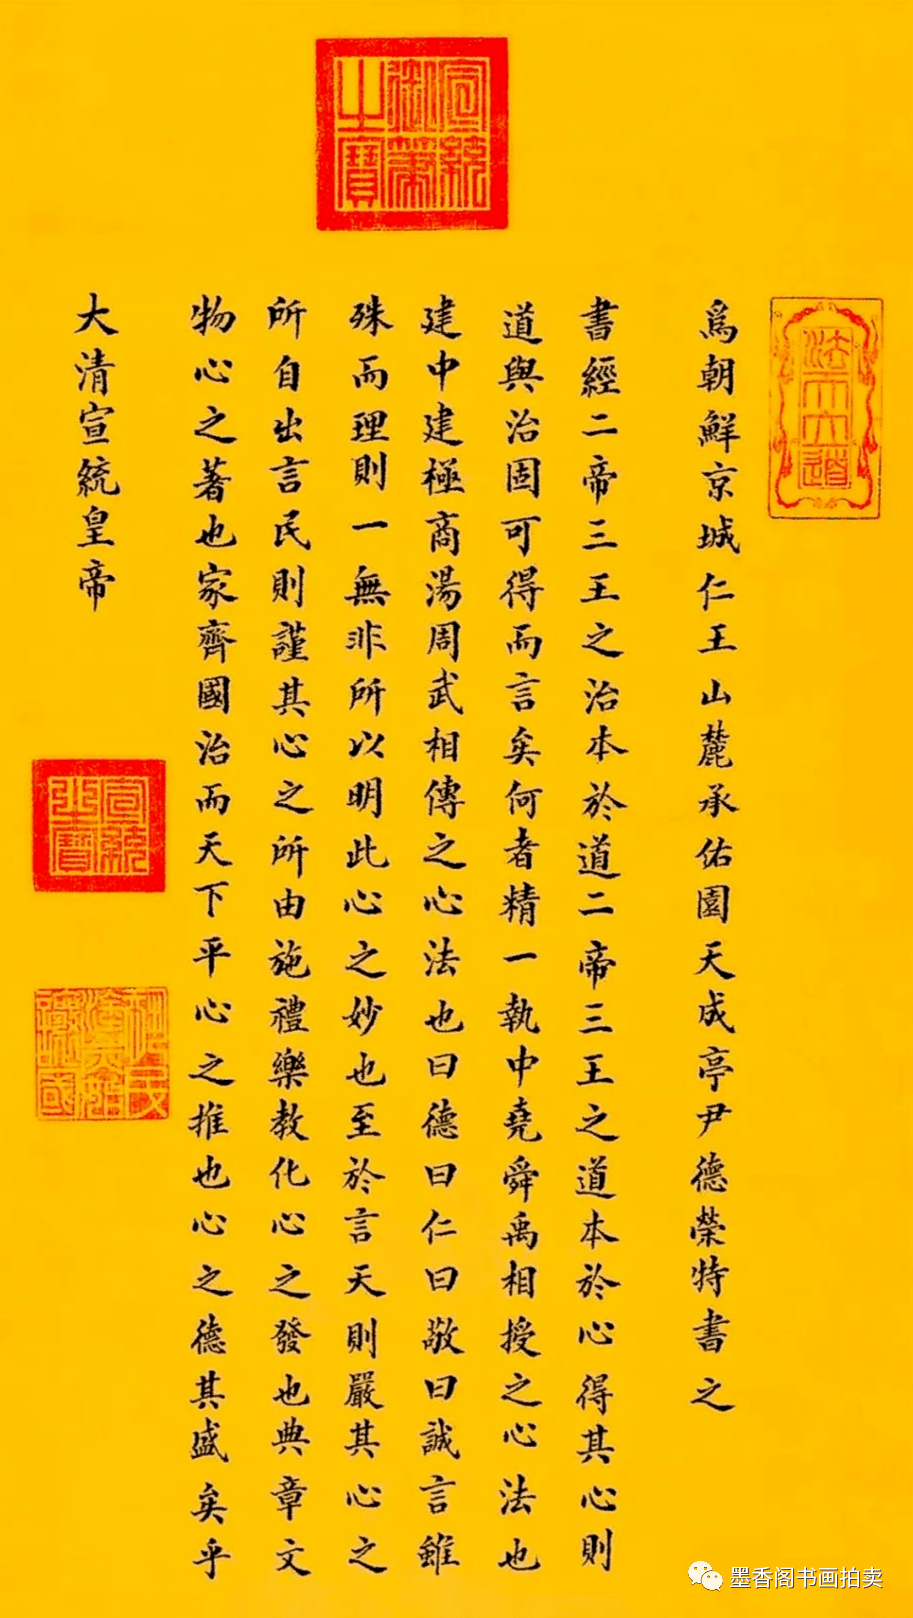 宣統御筆之寶
爲朝鮮京城仁王山麓承佑園天成亭尹德榮特書之
書經二帝三王之治本於道二帝三王之道本於心得其心則
道與治固可得而言矣何者精一執中堯舜禹相授之心法也
建中建極商湯周武相傳之心法也曰德曰仁曰敬曰誠言雖
殊而理則一無非所以明此心之妙也至於言天則嚴其心之
所自出言民則謹其心之所由施禮樂教化心之發也典章文
物心之著也家齊國治而天下平心之推也心之德其盛矣乎
大清宣統皇帝
宣統之寶
墨香阁书画拍卖